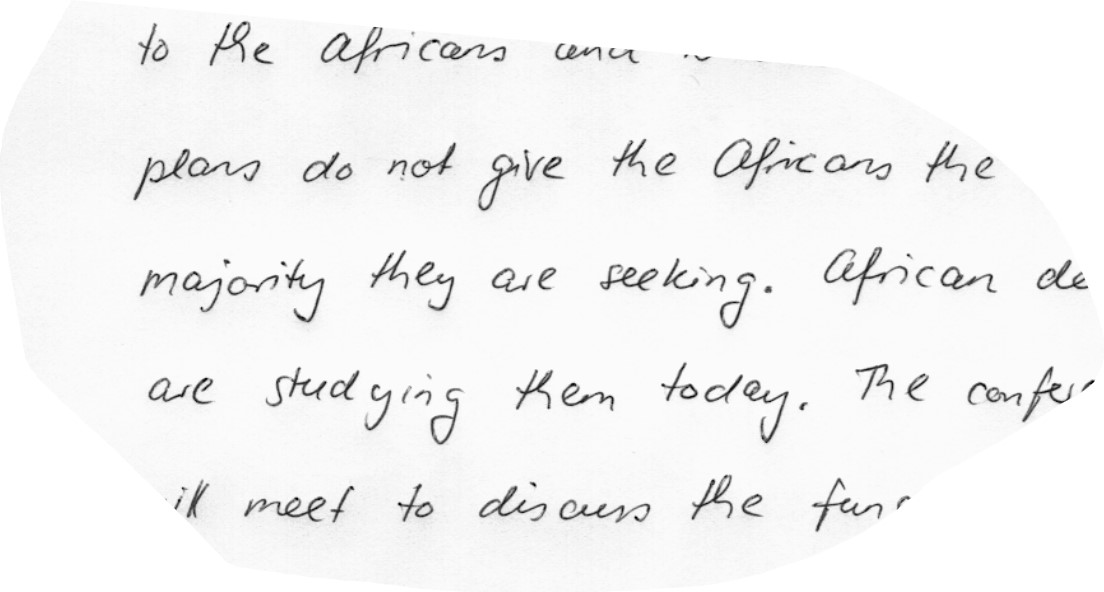 to the Africans and
plans do not give the Africans the
majority they are seeking. African
are studying them today. The
meet to discuss the